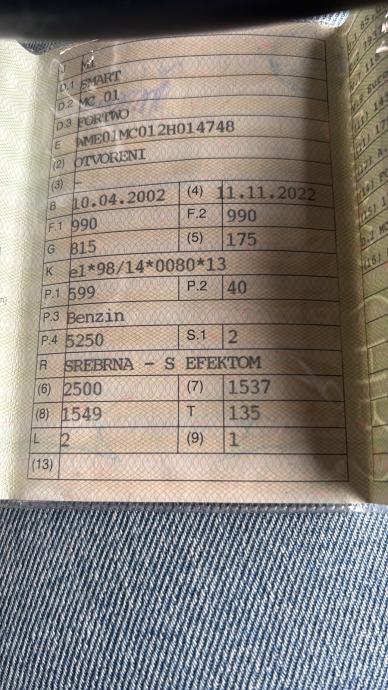 J M1
D.1 SMART
D.2 MC 01
D.3 FORTWO
E WME01MC012H014748
(2) OTVORENI
(3) -
B 10.04.2002 (4) 11.11.2022
F.1 990 F.2 990
G 815 (5) 175
K e1*98/14*0080*13
P.1 599 P.2 40
P.3 Benzin
P.4 5250 S.1 2
R SREBRNA - S EFEKTOM
(6) 2500 (7) 1537
(8) 1549 T 135
L 2 (9) 1
(13)